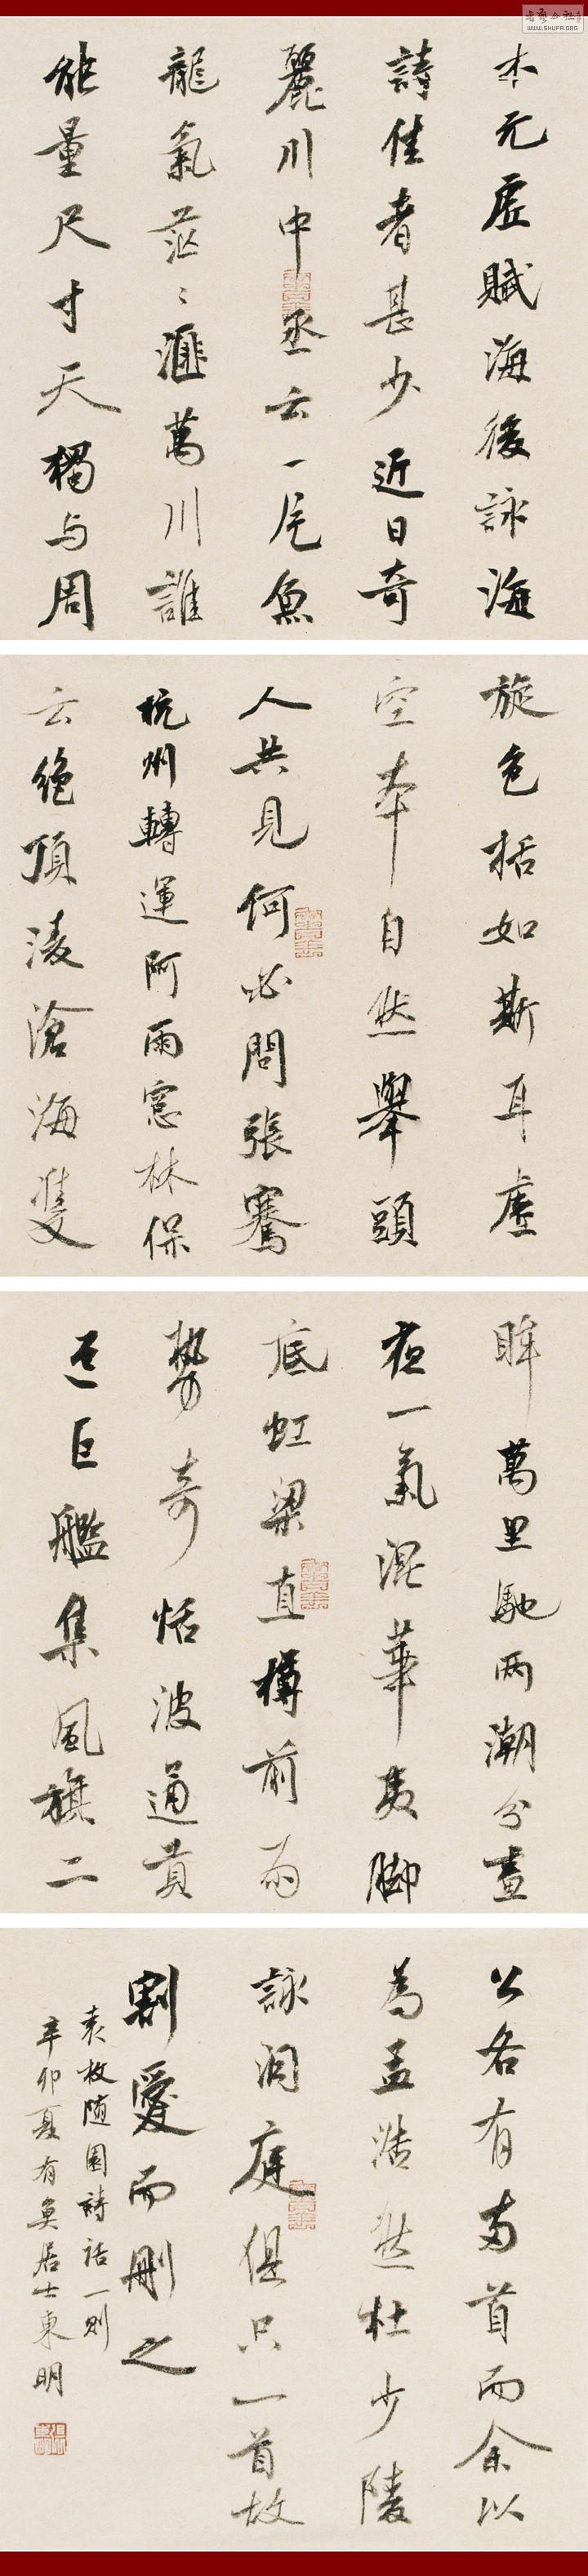 木元虛賦海後詠海
詩佳者甚少近日奇
麗川中丞云一片魚
龍氣茫〻滙萬川誰
能量尺寸天獨与周
旋色括如斯耳虛
空本自然舉頭
人共見何必問張騫
杭州轉運阿雨窓林保
云絶頂淩滄海雙
眸萬里馳兩潮分晝
夜一氣混華夷脚
底虹梁直樽前雨
勢奇恬波通貢
道巨艦集風旗二
公各有両首而余以
為孟浩然杜少陵
詠洞庭俱只一首故
割愛而刪之
袁枚随園詩話一則
辛卯夏有奐居士東明
WWW.SHUFA.ORG